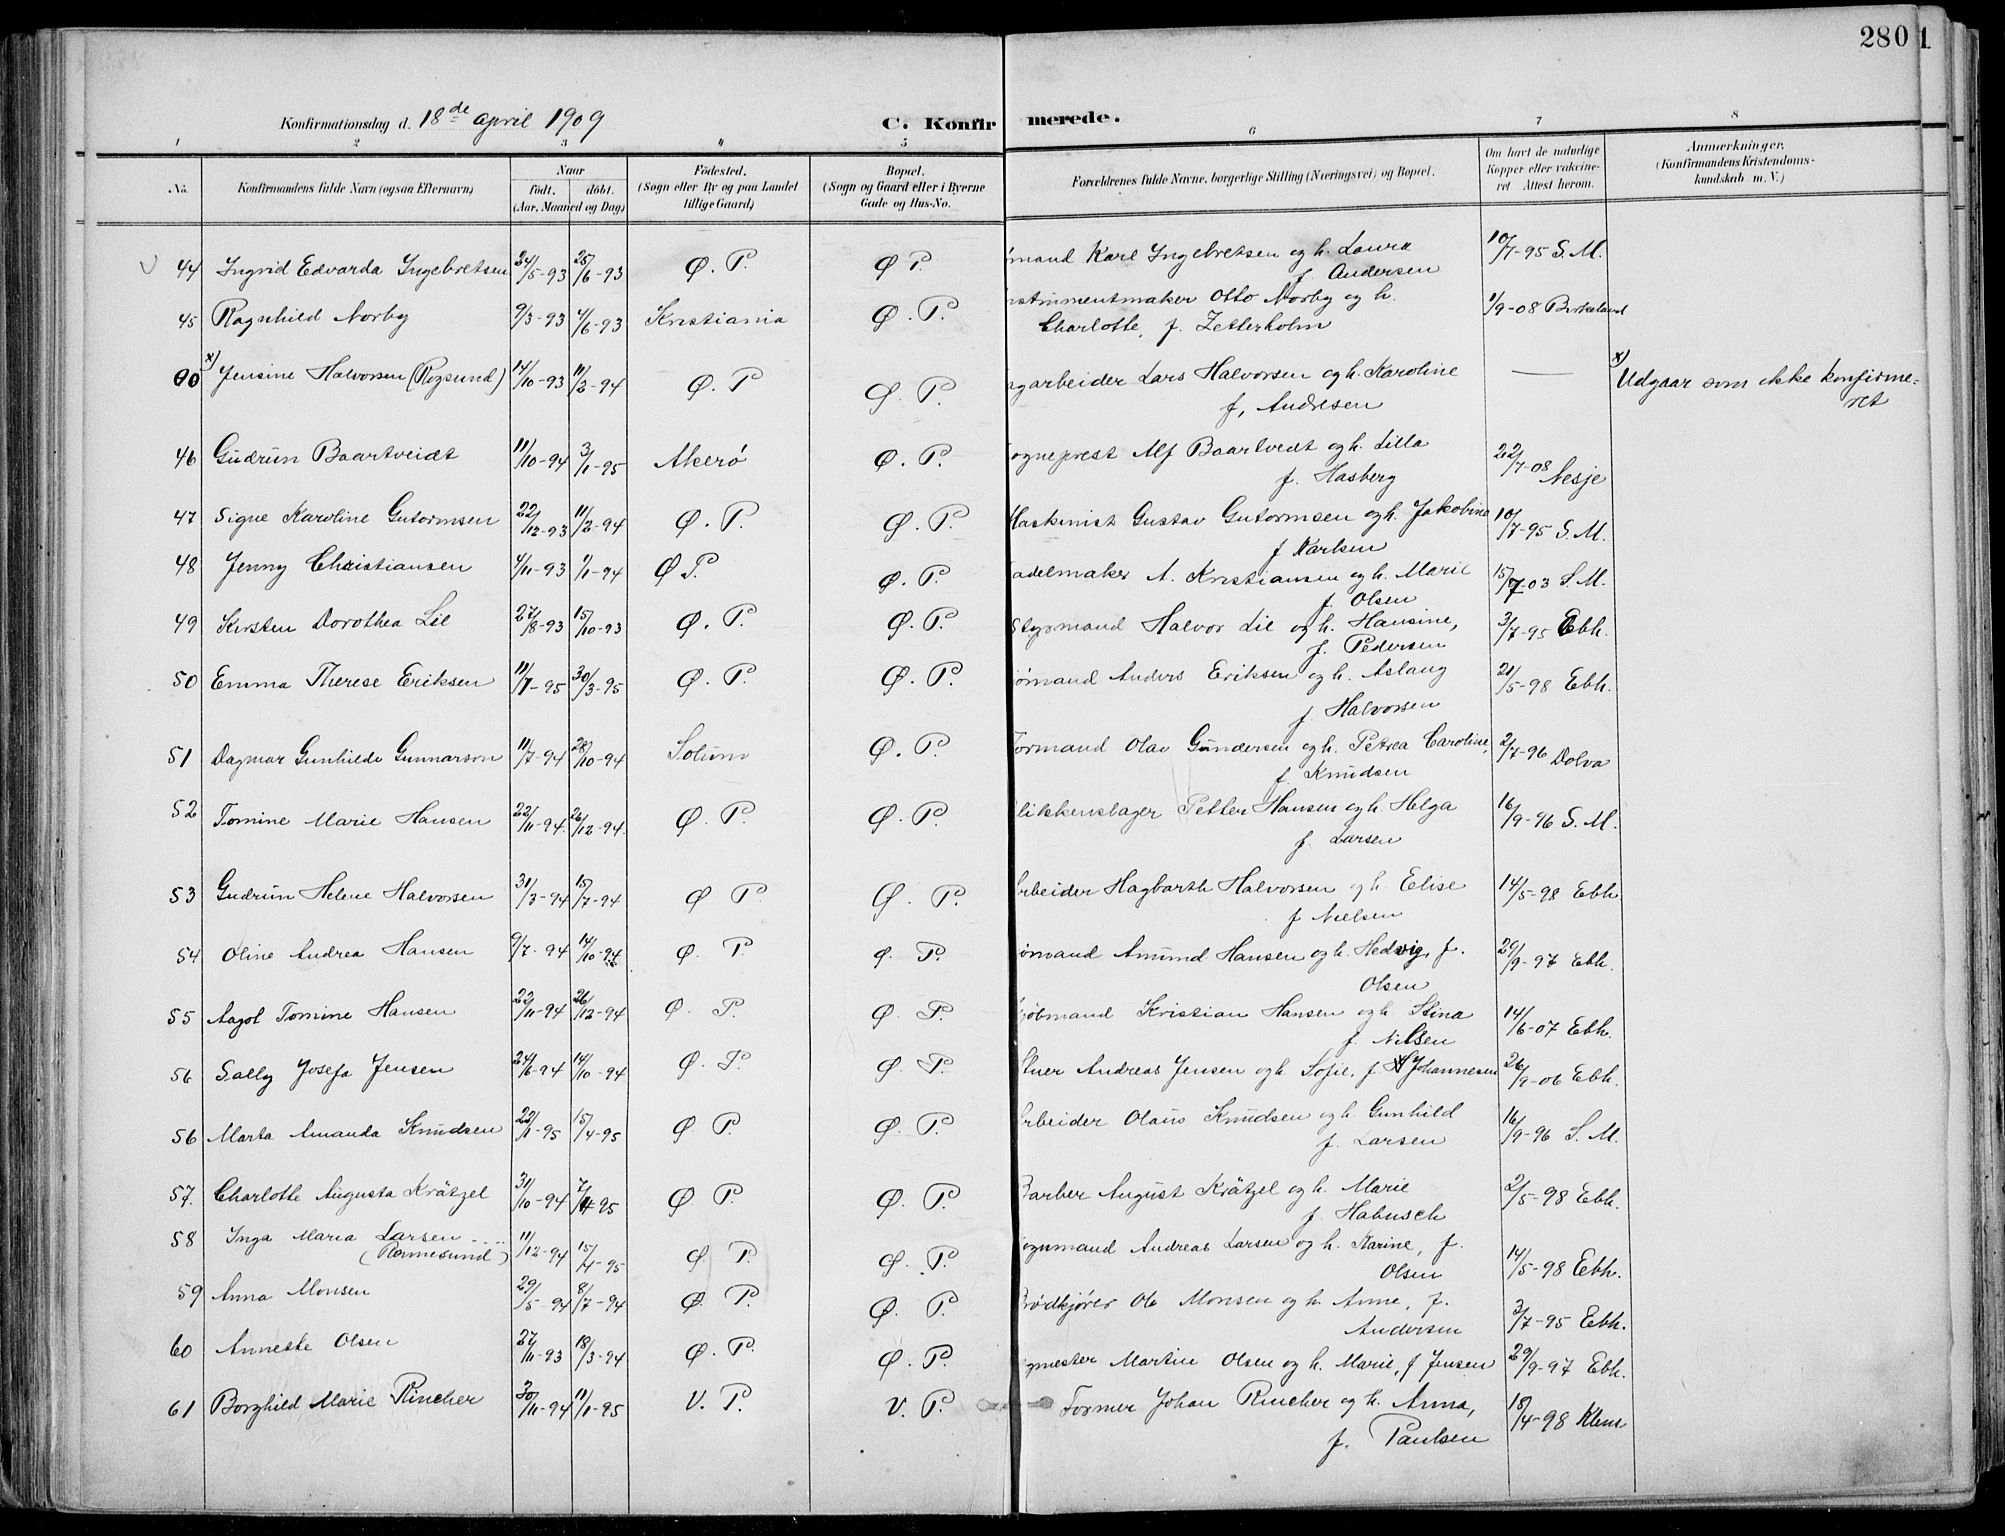 280 1
Konfirmationsdag d. 18de april 1909
C. Konfirmerede.
1 2 3 4 5 6 7 8
No. Konfirmandens fulde Navn (ogsaa Efternavn) Naar født. døbt. (Aar, Maaned og Dag) Fødested. (Sogn eller By og paa Landet tillige Gaard) Bopæl. (Sogn og Gaard eller i Byerne Gade og Hus-No. Forældrenes fulde Navne, borgerlige Stilling (Næringsvei) og Bopæl. Om havt de naturlige Kopper eller vakcineret Attest herom. Anmærkninger. (Konfirmandens Kristendomskundskab m. V.)
44 Ingrid Edvarda Ingebretsen 24/5-93 25/6-93 Ø. P. Ø P. mand Karl Ingebretsen og h. Laura
f. Andersen 10/7-95 S. M.
45 Ragnhild Norby 9/3-93 4/6-93 Kristiania Ø. P. nstrumentmaker Otto Norby og h.
Charlotte, f. Zetterholm 1/9-08 Birkeland
00 x) Jensine Halvorsen (Rogsund) 14/10-93 11/2-94 Ø. P Ø. P. garbeider Lars Halvorsen og h. Karoline
f. Andresen — x) Udgaar som ikke konfirme=
ret
46 Gudrun Baartveidt 11/10-94 3/1-95 Akerö Ø. P. ogneprest Alf Baartvedt og h. Lilla
f. Hasberg 22/7-08 Nesje
47 Signe Karoline Gutormsen 22/12-93 11/2-94 Ø. P. Ø. P. Maskinist Gustav Gutormsen og h. Jakobine
f Karlsen 10/7-95 S. M.
48 Jenny Christiansen 4/11-93 1/1-94 Ø P. Ø. P. adelmaker A. Kristiansen og h. Marie
f. Olsen 15/7-03 S. M.
49 Kirsten Dorothea Lie 27/8-93 15/10-93 Ø. P. Ø. P. Styrmand Halvor Lie og h. Hansine,
f. Pedersen 3/7-95 Ebh.
50 Emma Therese Eriksen 11/1-95 30/3-95 Ø. P. Ø. P. ømand Anders Eriksen og h. Aslaug
f. Halvorsen 21/5-98 Ebh.
51 Dagmar Gunhilde Gunnarson 11/7-94 28/10-94 Solum Ø. P. Formand Olav Gundersen og h. Petrea Caroline,
f. Knudsen 2/7-96 Dolva
52 Tomine Marie Hansen 22/11-94 26/12-94 Ø. P. Ø. P. likkenslager Petter Hansen og h. Helga
f. Larsen 16/9-96 S. M.
53 Gudrun Helene Halvorsen 31/3-94 15/7-94 Ø P Ø. P. rbeider Hagbarth Halvorsen og h. Elise
f Nielsen 14/5-98 Ebh
54 Oline Andrea Hansen 9/7-94 14/10-94 Ø. P. Ø. P. ømand Amund Hansen og h. Hedvig, f.
Olsen 29/9-97 Ebh.
55 Aagot Tomine Hansen 22/11-94 26/12-94 Ø. P. Ø P. jøbmand Kristian Hansen og h Stina
f. Nilsen 14/6-07 Ebh.
56 Sally Josefa Jensen 24/6-94 14/10-94 Ø. P. Ø. P. Andreas Jensen og h. Sofie, f. Johannesen 26/9-06 Ebh.
56 Marta Amanda Knudsen 22/1-95 15/4-95 Ø P. Ø. P. rbeider Olaus Knudsen og h. Gunhild
f. Larsen 16/9-96 S. M.
57. Charlotte Augusta Krätzel 31/10-94 7/4-95 Ø P. Ø. P. Barber August Krätzel og h. Marie
f. Habusch 2/5-98 Ebh.
58 Inga Maria Larsen
(Rønnesund) 11/12-94 15/4-95 Ø. P. Ø. P. ognmand Andreas Larsen og h. Karine, f.
Olsen 14/5-98 Ebh.
59 Anna Monsen 29/5-94 8/7-94 Ø. P. Ø. P. rødkjører Ole Monsen og h. Anne, f.
Andersen 3/7-95 Ebh.
60 Annette Olsen 27/11-93 18/3-94 Ø. P. Ø. P. gmester Martin Olsen og h. Marie, f Jensen 29/9-97 Ebh.
61 Borghild Marie Rincher 30/11-94 11/1-95 V. P. V. P. Former Johan Rincher og h. Anna,
f. Paulsen 18/4-98 Klem